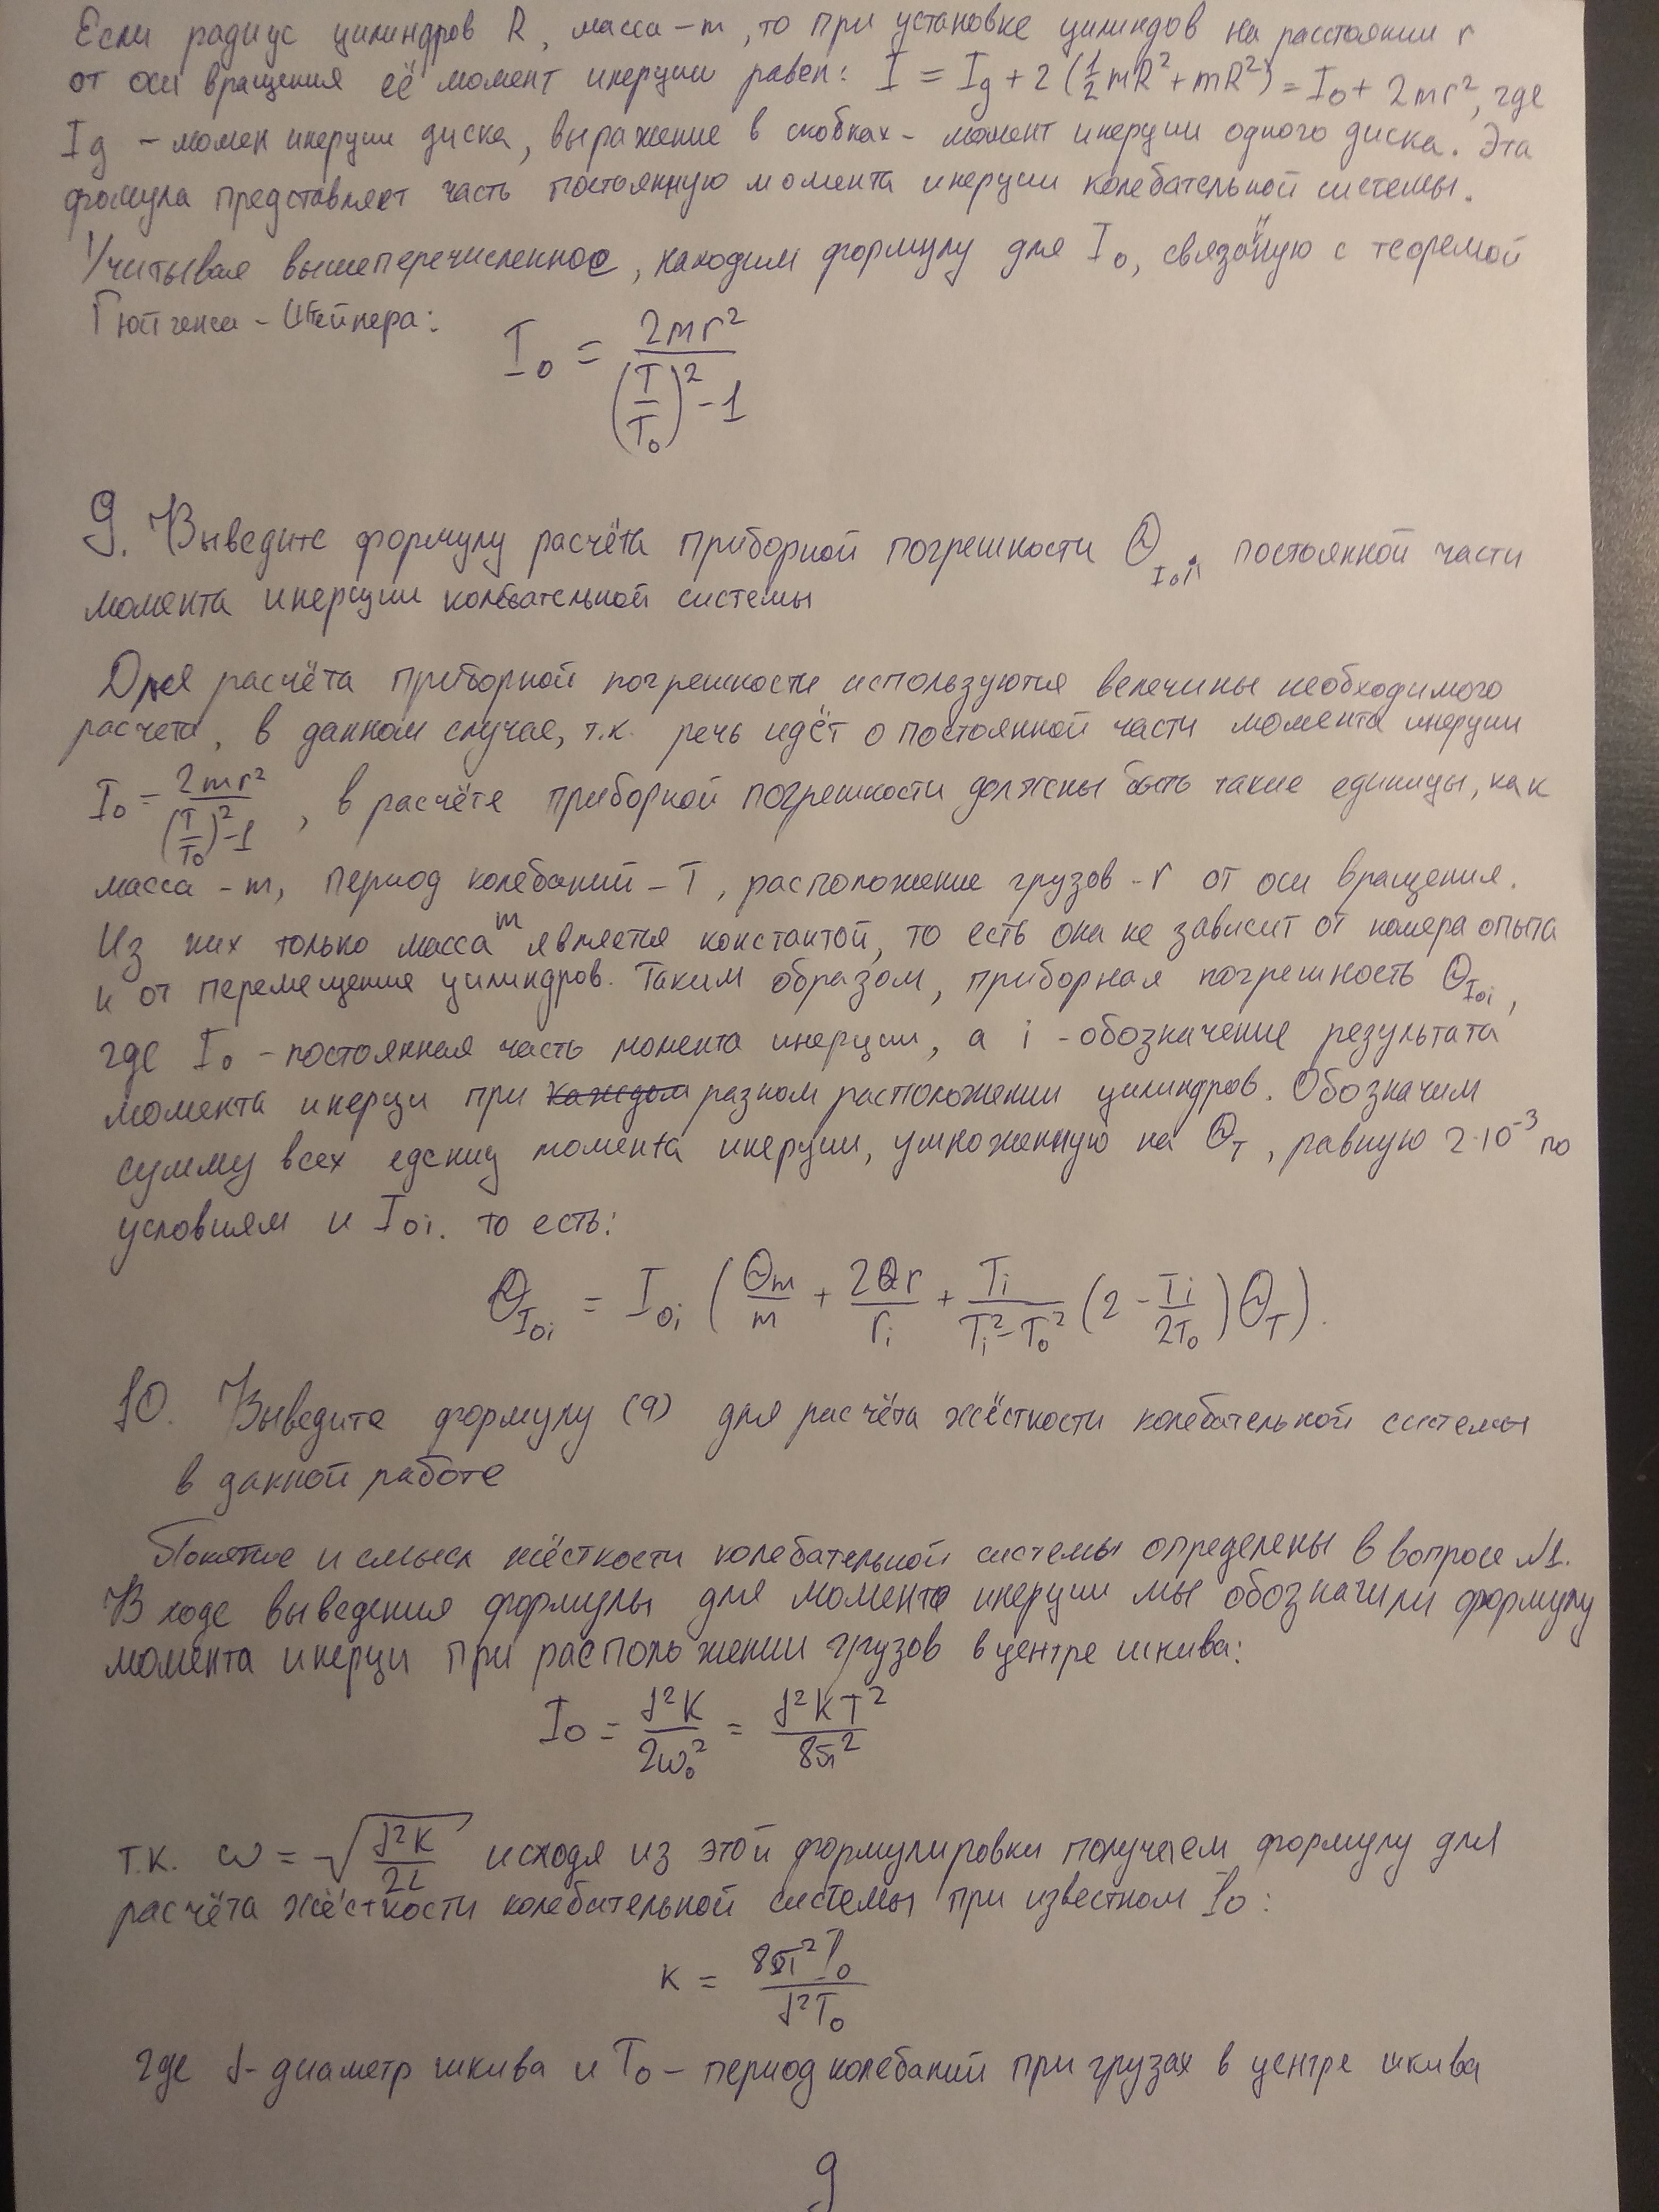 Если радиус цилиндров R, масса – m, то при установке цилиндов на расстоянии r
от оси вращения её момент инерции равен: I = Ig + 2 (½ mR² + mR²) = I₀ + 2mr², где
Ig – момен инерции диска, выражение в скобках – момент инерции одного диска. Эта
формула представляет часть постоянную момента инерции колебательной системы.
Учитывая вышеперечисленное, находим формулу для I₀, связаную с теоремой
Гюйгенса – Штейнера:
I₀ = 2mr² / ((T/T₀)² – 1)
9. Выведите формулу расчёта приборной погрешности Θ_I₀i постоянной части
момента инерции колебательной системы
Для расчёта приборной погрешности используются велечины необходимого
расчета, в данном случае, т.к. речь идёт о постоянной части момента инерции
I₀ = 2mr² / ((T/T₀)² – 1), в расчёте приборной погрешности должны быть такие единицы, как
масса – m, период колебаний – T, расположение грузов – r от оси вращения.
Из них только масса m является константой, то есть она не зависит от номера опыта
и от перемещения цилиндров. Таким образом, приборная погрешность Θ_I₀i,
где I₀ – постоянная часть момента инерции, а i – обозначение результата
момента инерци при каждом разном расположении цилиндров. Обозначим
сумму всех едениц момента инерции, умноженную на Θ_T, равную 2·10⁻³ по
условиям и I₀i. то есть:
Θ_I₀i = I₀i (Θm/m + 2Θr/ri + Ti/(Ti² – T₀²) (2 – Ti/2T₀) Θ_T).
10. Выведите формулу (9) для расчёта жёсткости колебательной системы
в данной работе
Понятие и смысл жёсткости колебательной системы определены в вопросе №1.
В ходе выведения формулы для момента инерции мы обозначили формулу
момента инерци при располо жении грузов в центре шкива:
I₀ = d²K / 2ω₀² = d²KT² / 8π²
т.к. ω = √(d²K / 2I) исходя из этой формулировки получаем формулу для
расчёта жёсткости колебательной системы при известном I₀:
K = 8π²I₀ / d²T₀
где d – диаметр шкива и T₀ – период колебаний при грузах в центре шкива
9